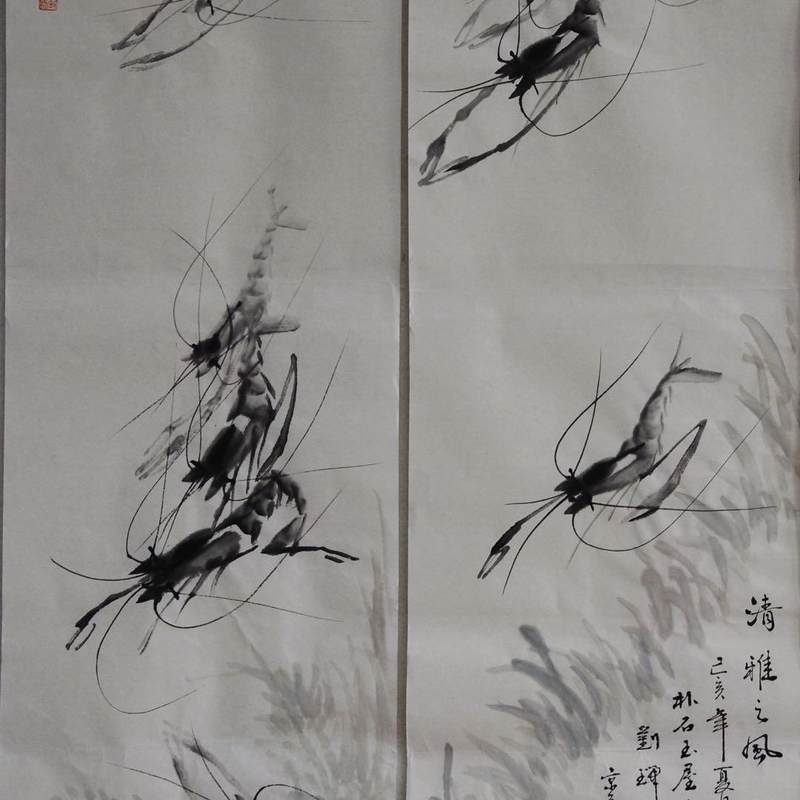 清雅之風
己亥年夏
朴石玉屋
劉輝
京